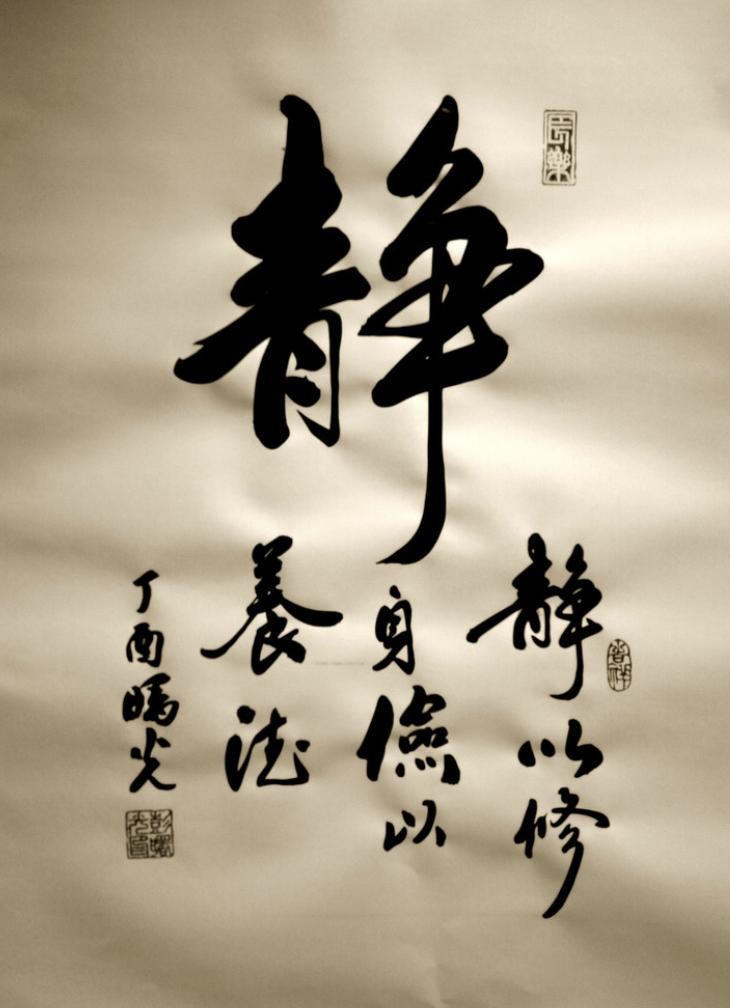 静
静以修
身儉以
養德
丁酉曙光